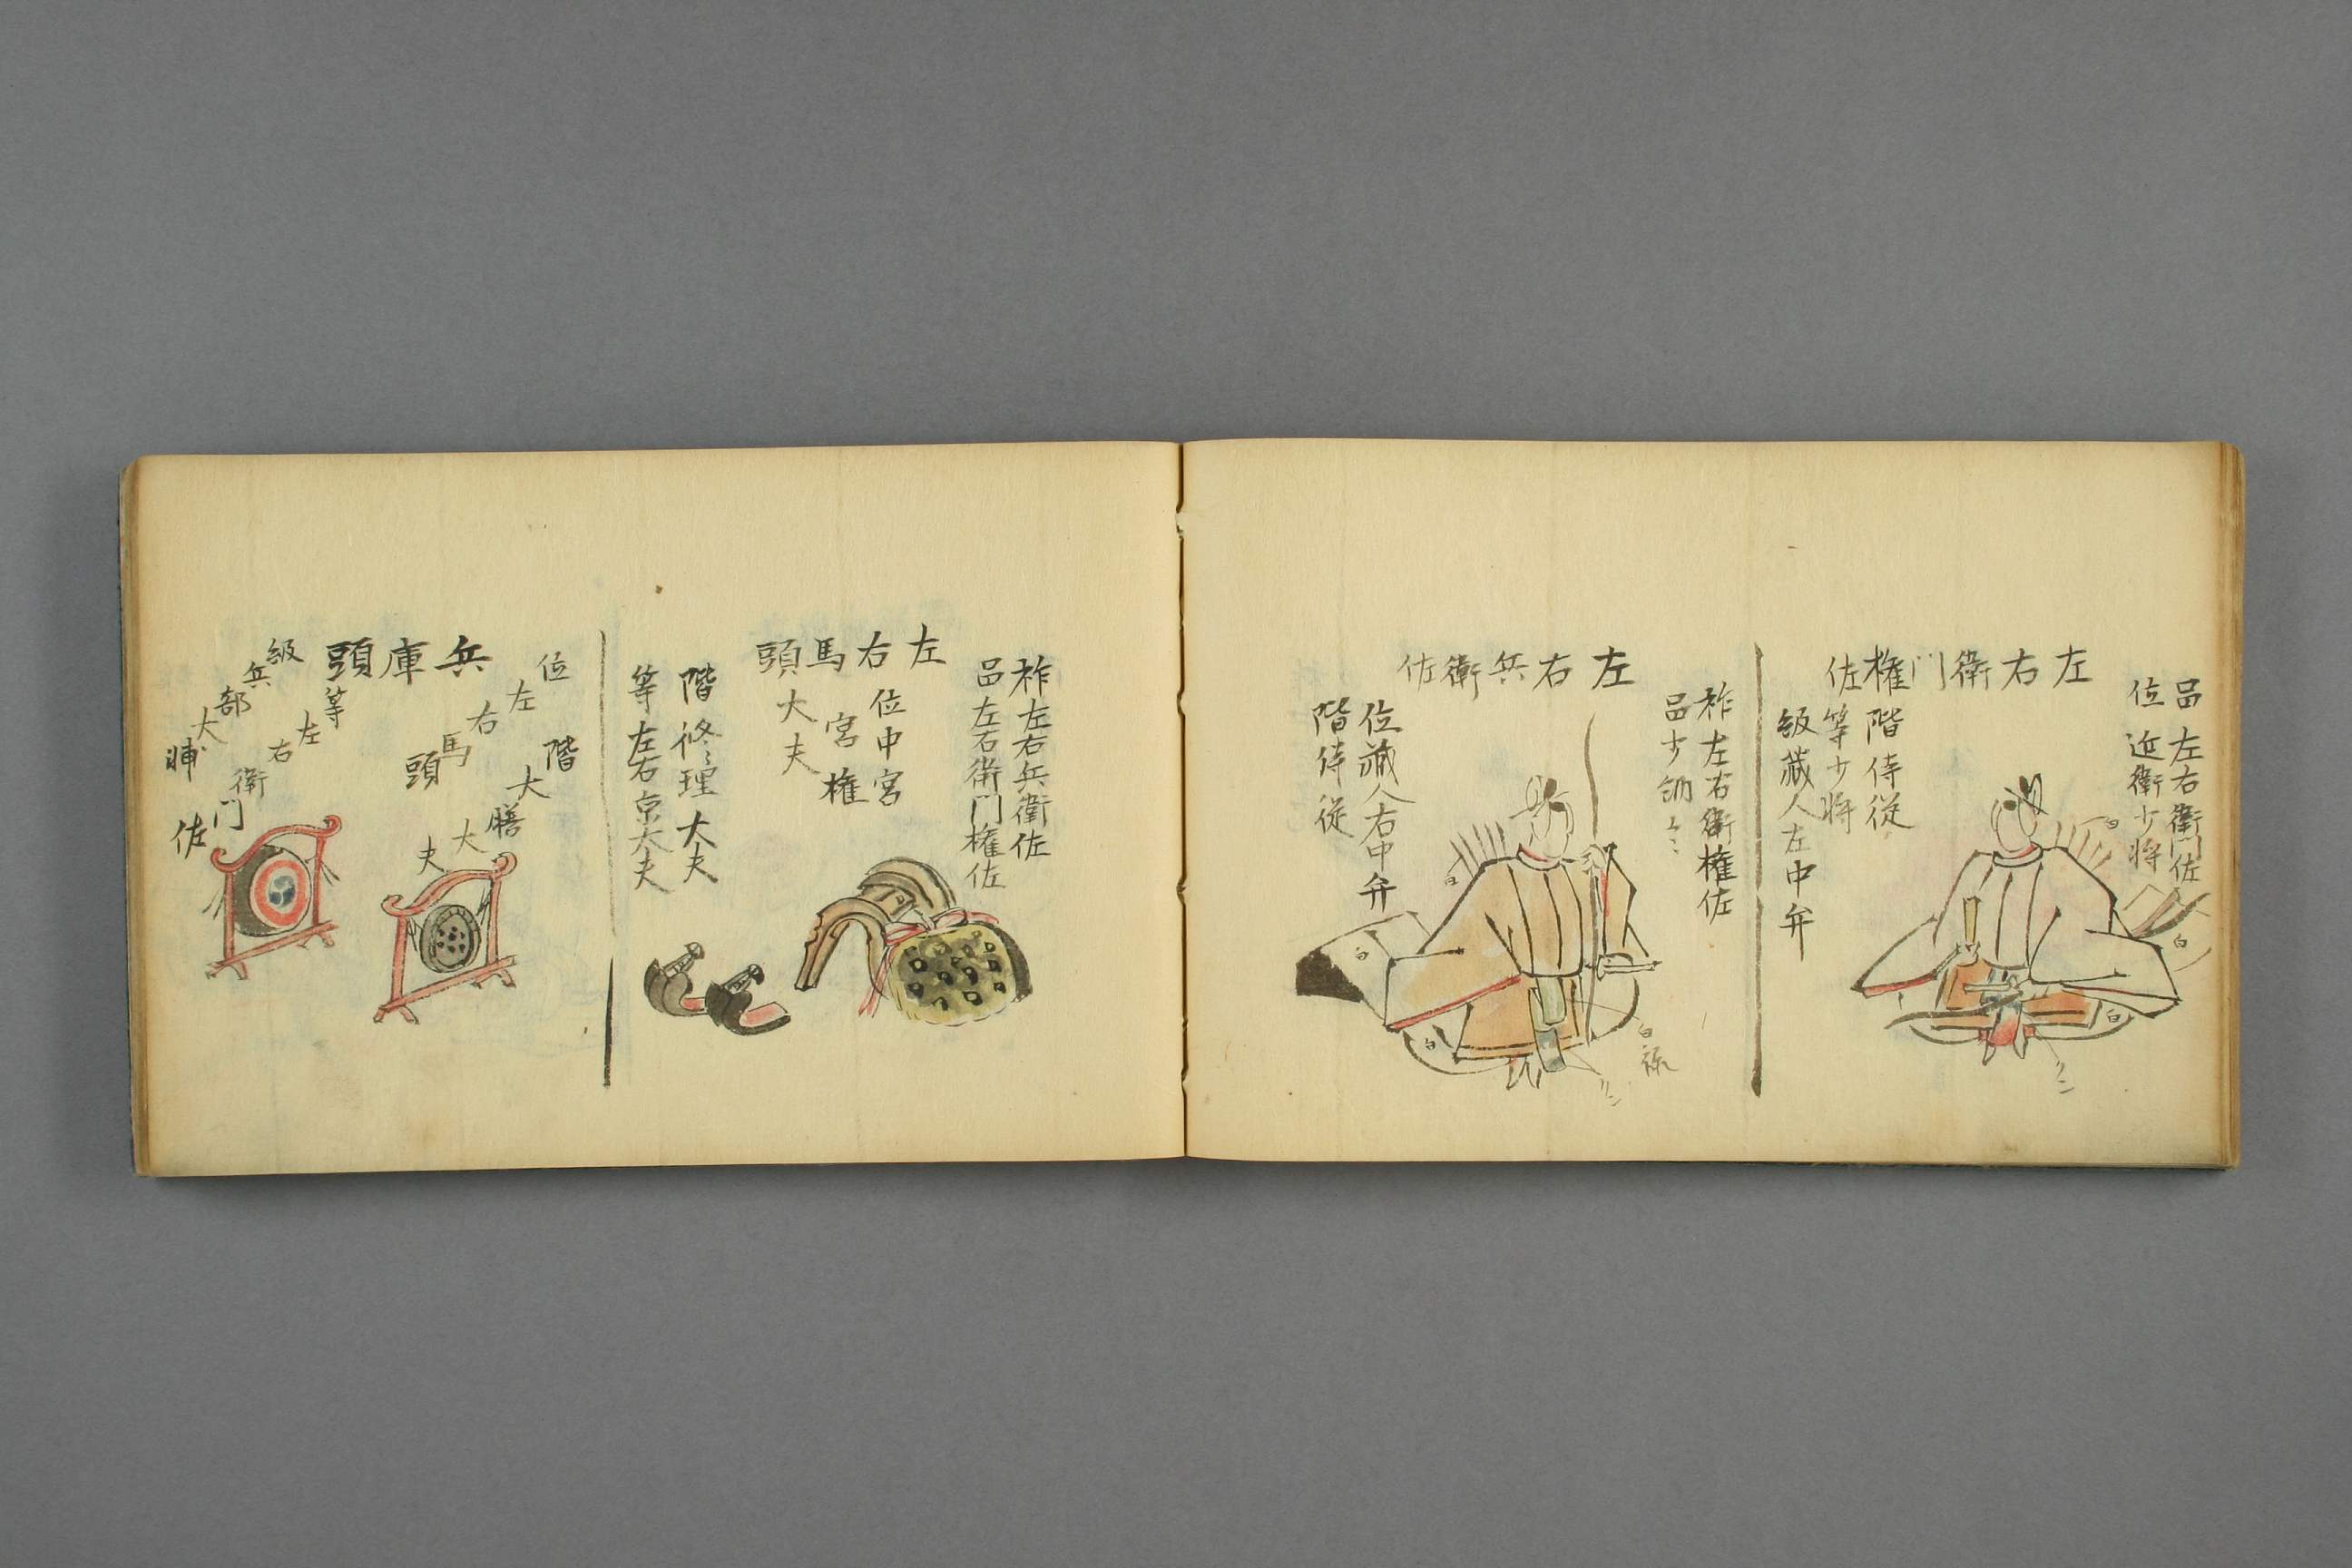 左右衛門権佐
品左右衛門佐
位近衛少将
階侍従
等少将
級蔵人左中弁
白
白
白
左右兵衛佐
祚左右衛権佐
品少納言
位蔵人右中弁
階侍従
白
白
白
白
左右馬頭
祚左右兵衛佐
品左右衛門権佐
位中宮
宮権
大夫
階修理大夫
等左右京大夫
兵庫頭
位左右馬頭
階大膳大夫
等左右衛門佐
級兵部大輔